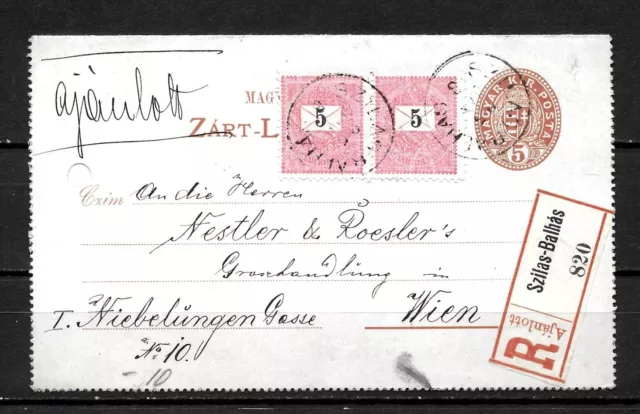 ajánlott
MAGY
ZÁRT-L
5
5
MAGYAR KIR. POSTA
5
Czim An die Herren
Nestler & Roesler's
Groshandlung in
I. Niebelungen Gasse Wien
No 10.
10
Szilas-Balhás
820
R
Ajánlott